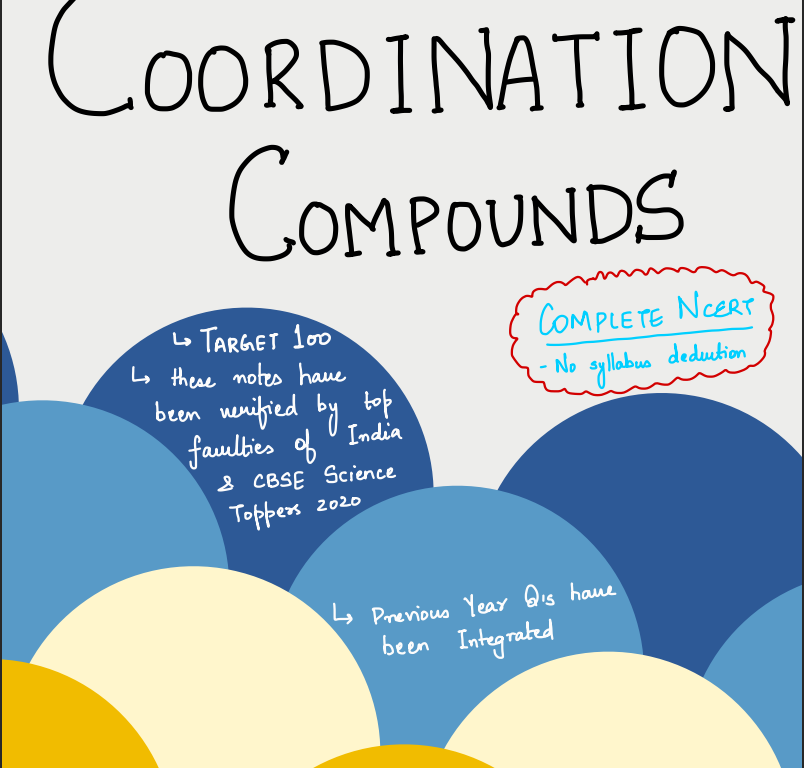 COORDINATION
COMPOUNDS
COMPLETE NCERT
- No syllabus dedution
↳ TARGET 100
↳ these notes have
been verified by top
faulties of India
& CBSE Science
Toppers 2020
↳ Previous Year Q's have
been Integrated